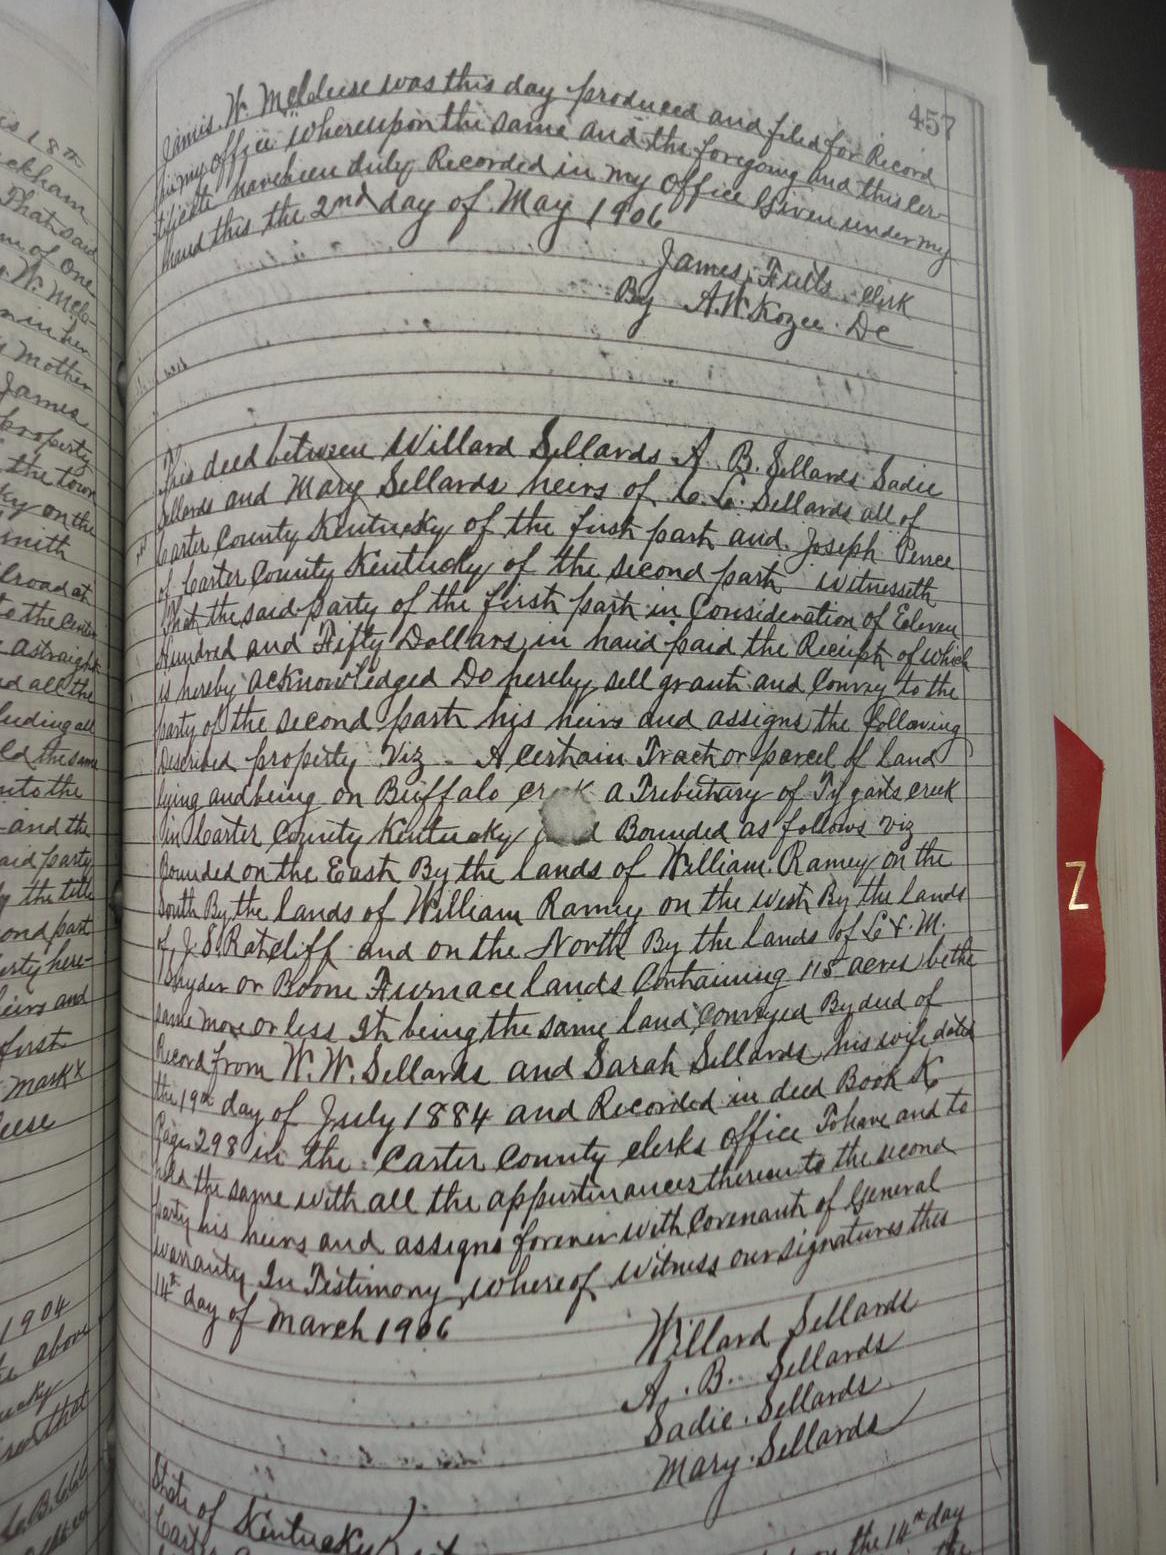 457
James W. McAleese was this day produced and filed for Record
in my office Whereupon the same and the foregoing and this Cer-
tificate have been duly Recorded in my Office Given under my
hand this the 2nd day of May 1906
James Fults Clerk
By A.W. Kozee Dc
This deed between Willard Sellards A. B. Sellards Sadie
Sellards and Mary Sellards heirs of C. C. Sellards all of
Carter County Kentucky of the first part and Joseph Pence
of Carter County Kentucky of the second part Witnesseth
That the said party of the first part in Consideration of Eleven
Hundred and Fifty Dollars in hand paid the Receipt of which
is hereby acknowledged Do hereby sell grant and Convey to the
party of the second part his heirs and assigns the following
Described property Viz - A certain Tract or parcel of land
lying and being on Buffalo creek a Tributary of Tygarts creek
in Carter County Kentucky and Bounded as follows Viz
Bounded on the East By the lands of William Ramey on the
South By the lands of William Ramey on the West By the lands
of J. S. Ratcliff and on the North By the lands of L. & M.
Snyder or Boone Furnace lands Containing 115 acres be the
same more or less It being the same land Conveyed By deed of
Record from W. W. Sellards and Sarah Sellards his wife dated
the 19th day of July 1884 and Recorded in deed Book K
Page 298 in the Carter County Clerks office To have and to
hold the same with all the appurtinances thereunto the second
party his heirs and assigns forever with Covenant of General
warranty In Testimony Whereof Witness our signatures this
14th day of March 1906
Willard Sellards
A. B. Sellards
Sadie Sellards
Mary Sellards
State of Kentucky )
Carter
the 14th day
the
Z
is 18th
ckham
That said
of one
W. McA-
in her
mother
James
property
the town
ky on the
mith
lroad at
to the center
a straight
and all the
luding all
ld the same
unto the
and the
aid party
the title
ond part
erty here-
eirs and
first
mark x
eese
1904
above
ucky
that